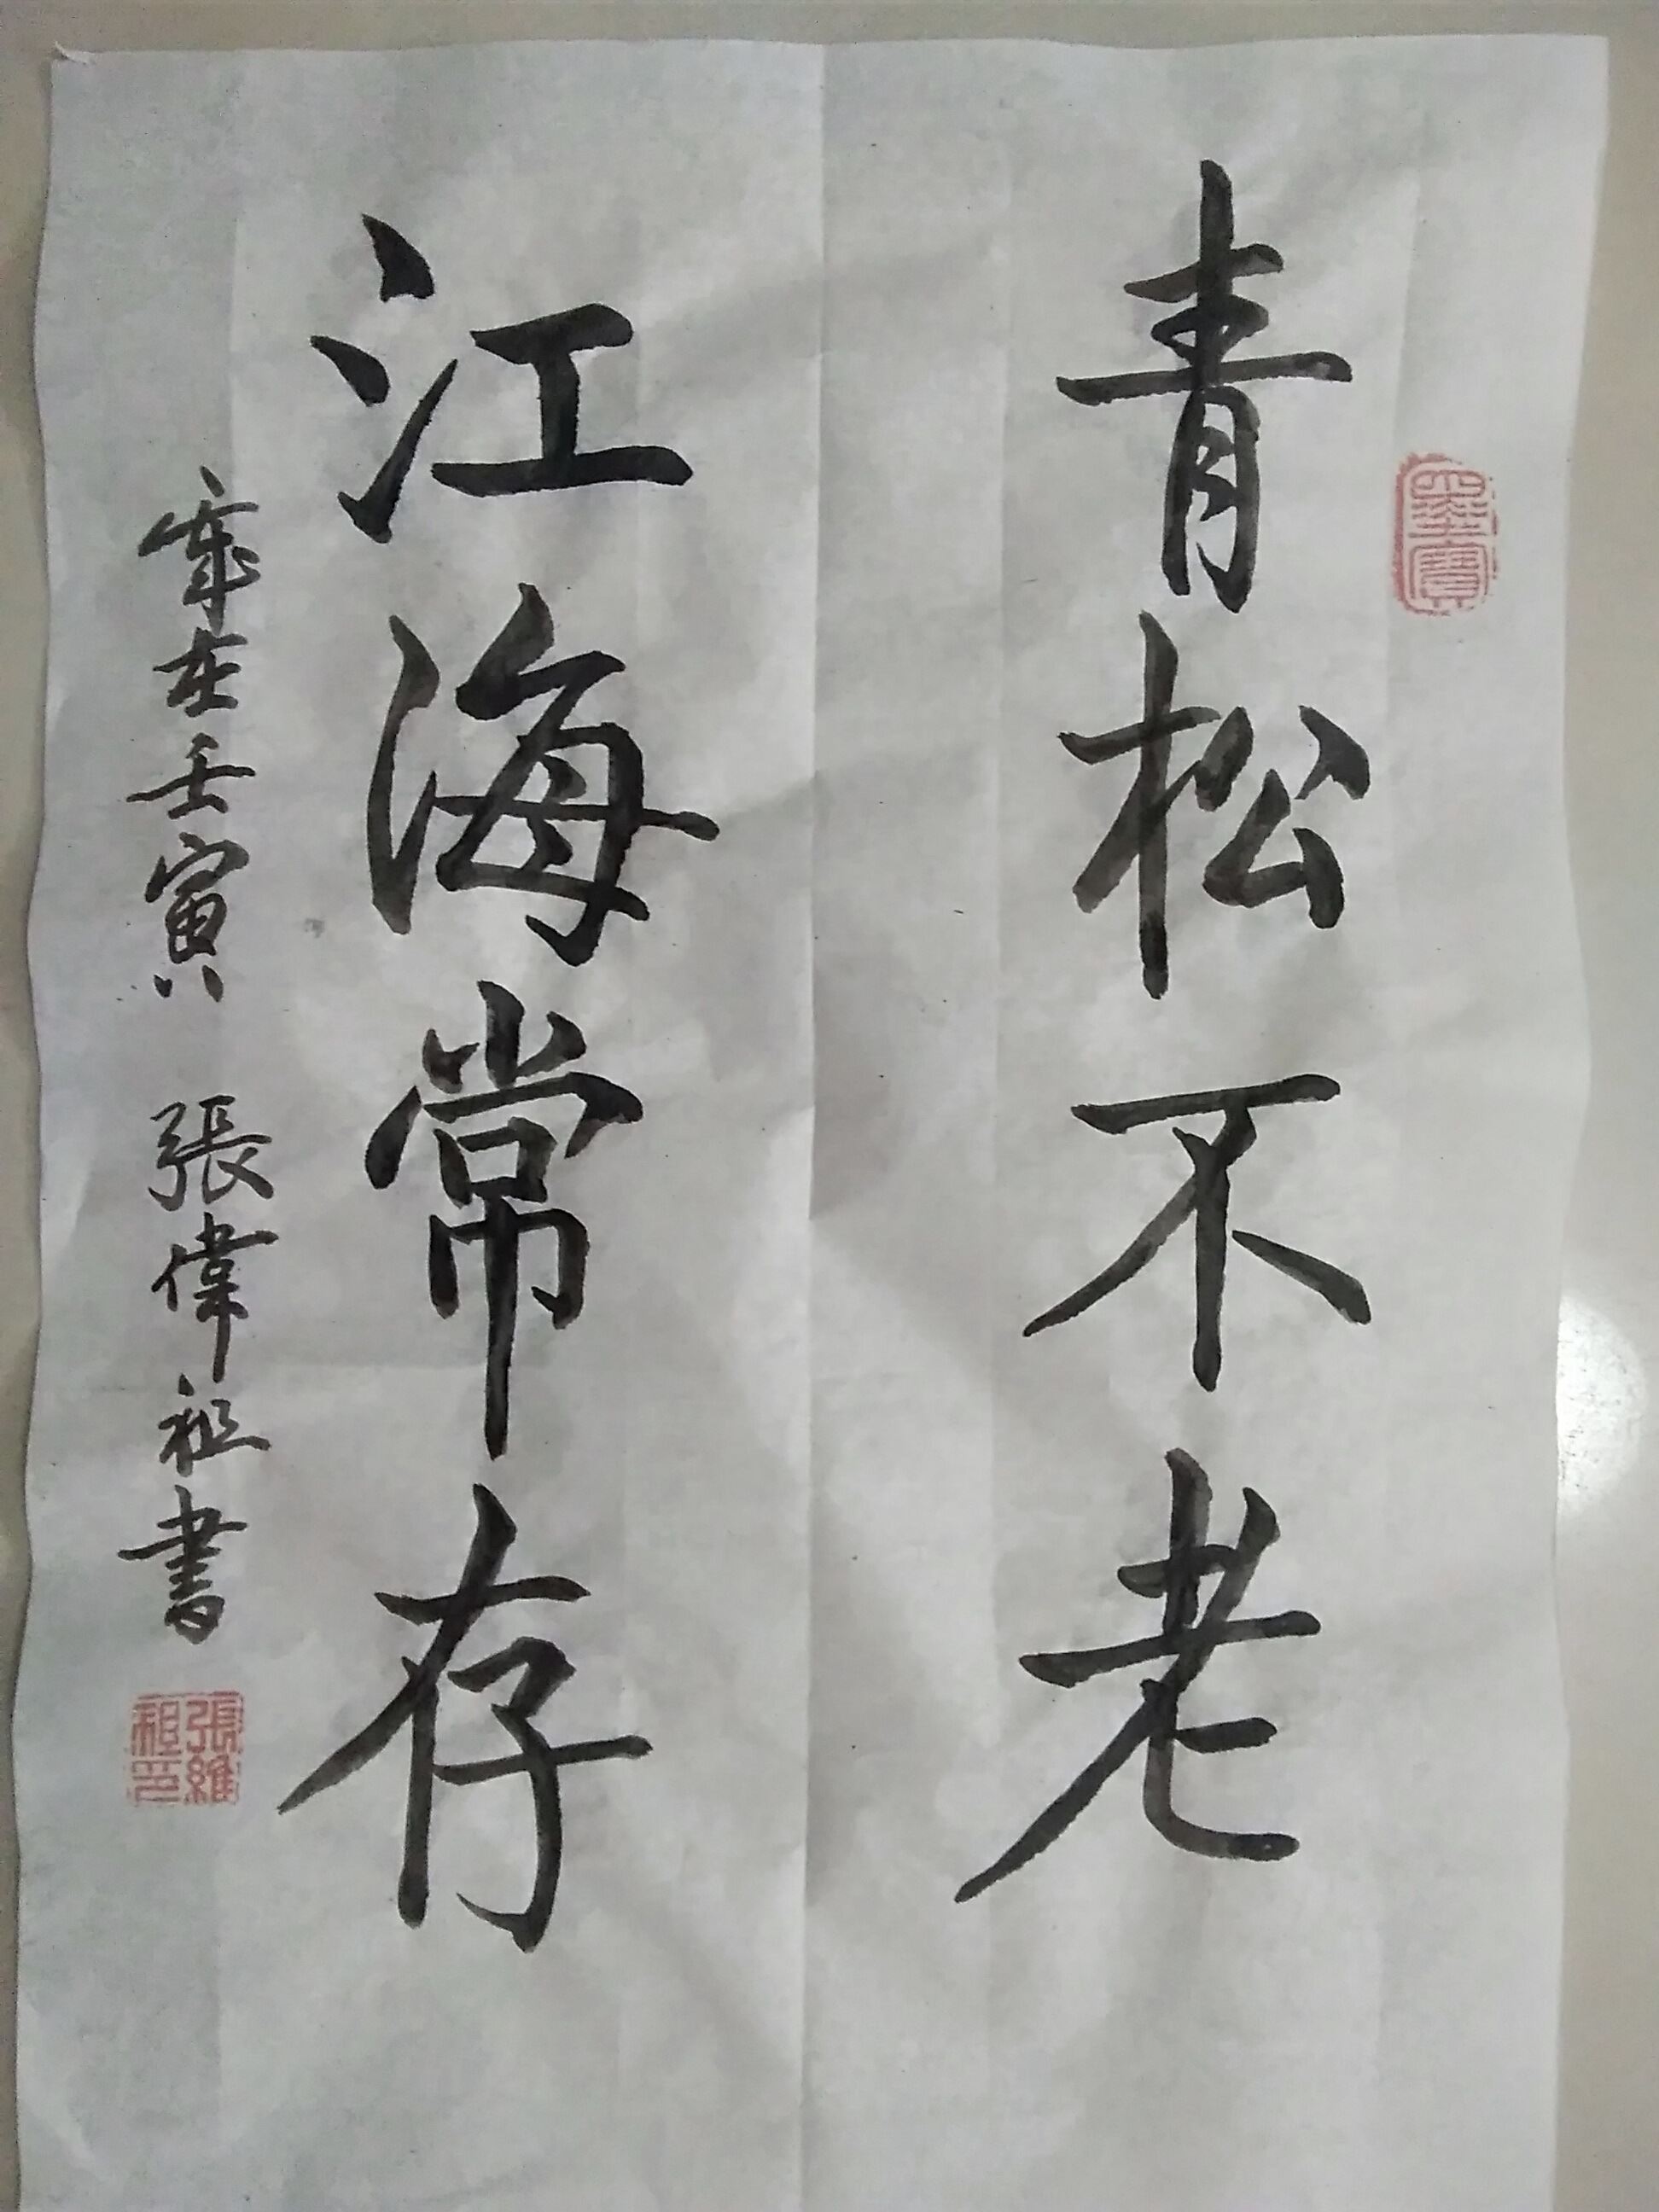 青松不老
江海常存
歲在壬寅 張偉祖書
墨寶
張維祖印